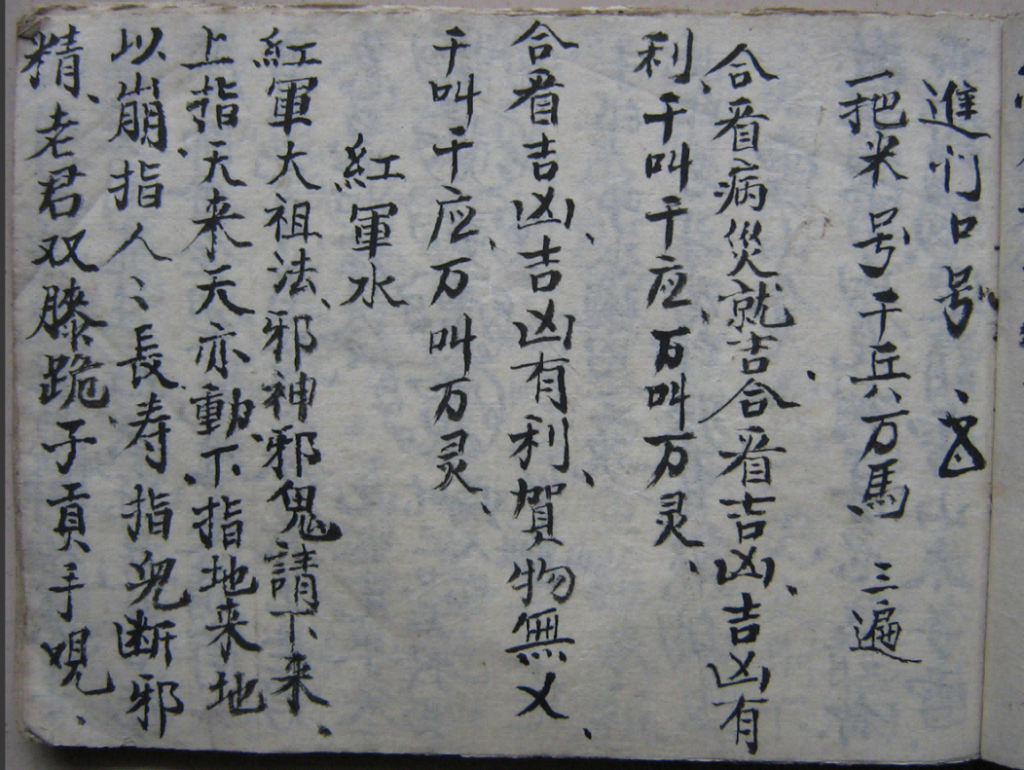 進们口号
一把米 号千兵万馬 三遍
合看病災就吉合看吉凶、吉凶有
利、千叫千应、万叫万灵、
合看吉凶、吉凶有利、賀物無乂、
千叫千应、万叫万灵、
紅軍水
紅軍大祖法、邪神邪鬼請下来、
上指天来天亦動、下指地来地
以崩指人〻長寿指鬼断邪
精、老君双膝跪、子貢手